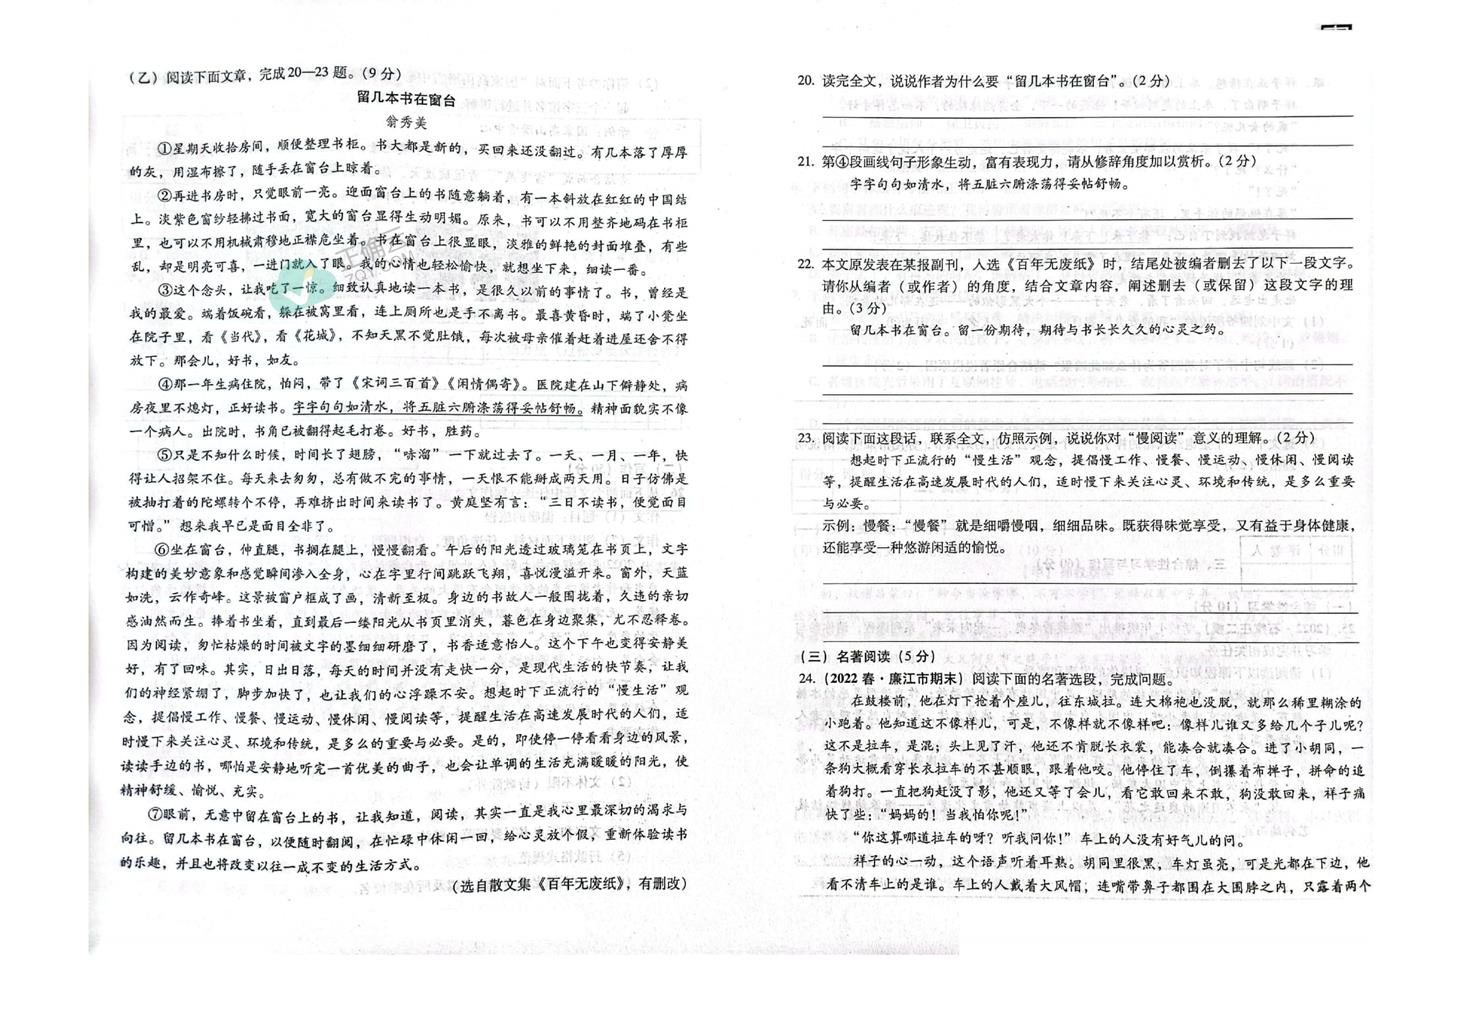 (乙)阅读下面文章，完成20—23题。(9分)
留几本书在窗台
翁秀美
①星期天收拾房间，顺便整理书柜。书大都是新的，买回来还没翻过。有几本落了厚厚
的灰，用湿布擦了，随手丢在窗台上晾着。
②再进书房时，只觉眼前一亮。迎面窗台上的书随意躺着，有一本斜放在红红的中国结
上。淡紫色窗纱轻拂过书面，宽大的窗台显得生动明媚。原来，书可以不用整齐地码在书柜
里，也可以不用机械肃穆地正襟危坐着。书在窗台上很显眼，淡雅的鲜艳的封面堆叠，有些
乱，却是明亮可喜，一进门就入了眼。我的心情也轻松愉快，就想坐下来，细读一番。
③这个念头，让我吃了一惊。细致认真地读一本书，是很久以前的事情了。书，曾经是
我的最爱。端着饭碗看，躲在被窝里看，连上厕所也是手不离书。最喜黄昏时，端了小凳坐
在院子里，看《当代》、看《花城》，不知天黑不觉肚饿，每次被母亲催着赶着进屋还舍不得
放下。那会儿，好书，如友。
④那一年生病住院，怕闷，带了《宋词三百首》《闲情偶寄》。医院建在山下僻静处，病
房夜里不熄灯，正好读书。字字句句如清水，将五脏六腑涤荡得妥帖舒畅。精神面貌实不像
一个病人。出院时，书角已被翻得起毛打卷。好书，胜药。
⑤只是不知什么时候，时间长了翅膀，“哧溜”一下就过去了。一天、一月、一年，快
得让人招架不住。每天来去匆匆，总有做不完的事情，一天恨不能掰成两天用。日子仿佛是
被抽打着的陀螺转个不停，再难挤出时间来读书了。黄庭坚有言：“三日不读书，便觉面目
可憎。”想来我早已是面目全非了。
⑥坐在窗台，伸直腿，书搁在腿上，慢慢翻看。午后的阳光透过玻璃笔在书页上，文字
构建的美妙意象和感觉瞬间渗入全身，心在字里行间跳跃飞翔，喜悦漫溢开来。窗外，天蓝
如洗，云作奇峰。这景被窗户框成了画，清新至极。身边的书故人一般围拢着，久违的亲切
感油然而生。捧着书坐着，直到最后一缕阳光从书页里消失，暮色在身边聚集，尤不忍释卷。
因为阅读，匆忙枯燥的时间被文字的墨细细研磨了，书香适意怡人。这个下午也变得安静美
好，有了回味。其实，日出日落，每天的时间并没有走快一分，是现代生活的快节奏，让我
们的神经紧绷了，脚步加快了，也让我们的心浮躁不安。想起时下正流行的“慢生活”观
念，提倡慢工作、慢餐、慢运动、慢休闲、慢阅读等，提醒生活在高速发展时代的人们，适
时慢下来关注心灵、环境和传统，是多么的重要与必要。是的，即使停一停看看身边的风景，
读读手边的书，哪怕是安静地听完一首优美的曲子，也会让单调的生活充满暖暖的阳光，使
精神舒缓、愉悦、充实。
⑦眼前，无意中留在窗台上的书，让我知道，阅读，其实一直是我心里最深切的渴求与
向往。留几本书在窗台，以便随时翻阅，在忙碌中休闲一回，给心灵放个假，重新体验读书
的乐趣，并且也将改变以往一成不变的生活方式。
(选自散文集《百年无废纸》，有删改)
20. 读完全文，说说作者为什么要“留几本书在窗台”。(2分)
21. 第④段画线句子形象生动，富有表现力，请从修辞角度加以赏析。(2分)
字字句句如清水，将五脏六腑涤荡得妥帖舒畅。
22. 本文原发表在某报副刊，入选《百年无废纸》时，结尾处被编者删去了以下一段文字。
请你从编者（或作者）的角度，结合文章内容，阐述删去（或保留）这段文字的理
由。(3分)
留几本书在窗台。留一份期待，期待与书长长久久的心灵之约。
23. 阅读下面这段话，联系全文，仿照示例，说说你对“慢阅读”意义的理解。(2分)
想起时下正流行的“慢生活”观念，提倡慢工作、慢餐、慢运动、慢休闲、慢阅读
等，提醒生活在高速发展时代的人们，适时慢下来关注心灵、环境和传统，是多么重要
与必要。
示例：慢餐：“慢餐”就是细嚼慢咽，细细品味。既获得味觉享受，又有益于身体健康，
还能享受一种悠游闲适的愉悦。
(三) 名著阅读(5分)
24. (2022春·廉江市期末) 阅读下面的名著选段，完成问题。
在鼓楼前，他在灯下抢着个座儿，往东城拉。连大棉袍也没脱，就那么稀里糊涂的
小跑着。他知道这不像样儿，可是，不像样就不像样吧：像样儿谁又多给几个子儿呢？
这不是拉车，是混；头上见了汗，他还不肯脱长衣裳，能凑合就凑合。进了小胡同，一
条狗大概看穿长衣拉车的不甚顺眼，跟着他咬。他停住了车，倒攥着布掸子，拼命的追
着狗打。一直把狗赶没了影，他还又等了会儿，看它敢回来不敢，狗没敢回来，祥子痛
快了些：“妈妈的！当我怕你呢！”
“你这算哪道拉车的呀？听我问你！”车上的人没有好气儿的问。
祥子的心一动，这个语声听着耳熟。胡同里很黑，车灯虽亮，可是光都在下边，他
看不清车上的是谁。车上的人戴着大风帽，连嘴带鼻子都围在大围脖之内，只露着两个